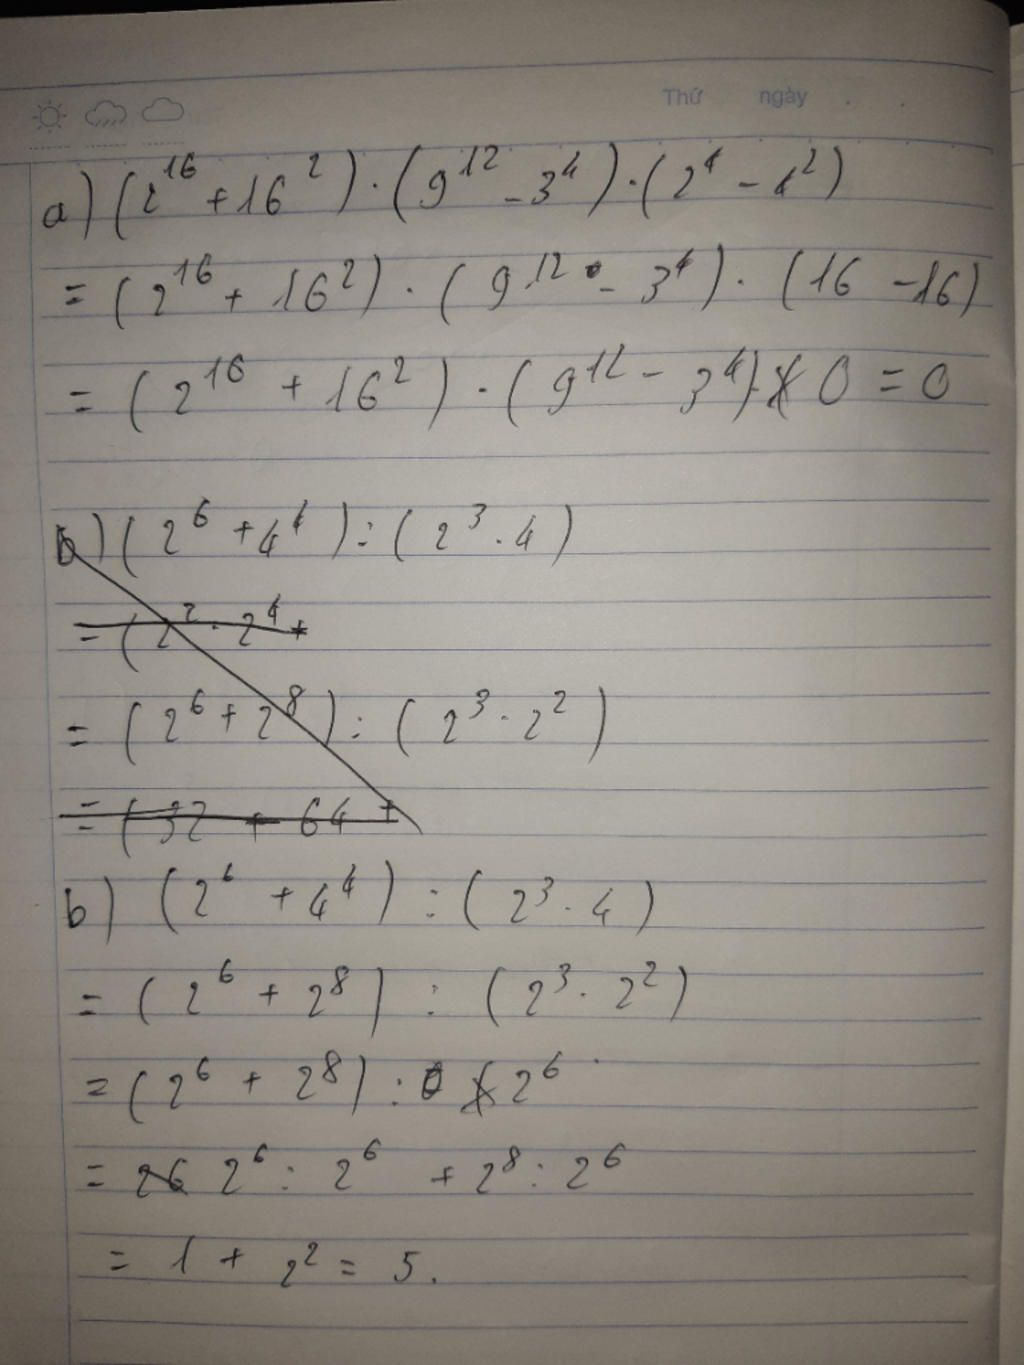 Thứ ngày . .
a) (2^16 + 16^2) . (9^12 - 3^4) . (2^4 - 4^2)
= (2^16 + 16^2) . (9^12 - 3^4) . (16 - 16)
= (2^16 + 16^2) . (9^12 - 3^4) . 0 = 0
b) (2^6 + 4^4) : (2^3 . 4)
= (2^2 . 2^4 +
= (2^6 + 2^8) : (2^3 . 2^2)
= (32 + 64 +
b) (2^6 + 4^4) : (2^3 . 4)
= (2^6 + 2^8) : (2^3 . 2^2)
= (2^6 + 2^8) : 2^6
= 26 2^6 : 2^6 + 2^8 : 2^6
= 1 + 2^2 = 5.